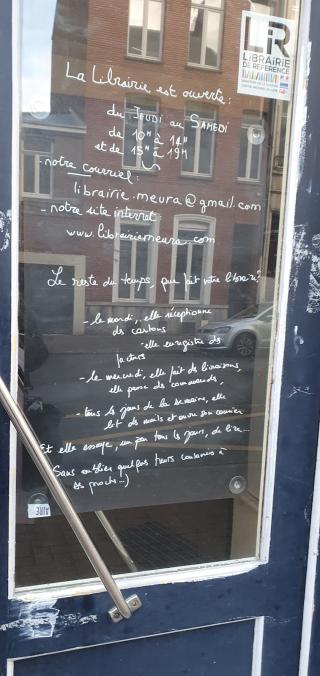 LiR
LiBRAiRiE
DE RÉFÉRENCE
La Librairie est ouverte :
du JEUDI au SAMEDI
de 10H à 14H
et de 15H à 19H
- notre courriel :
librairie.meura@gmail.com
- notre site internet :
www.librairiemeura.com
Le reste du temps, que fait votre libraire ?
- le mardi, elle réceptionne
des cartons
elle enregistre des
factures
- le mercredi, elle fait des livraisons,
elle passe des commandes,
- tous les jours de la semaine, elle
lit des mails et ouvre son courrier
Et elle essaye, un peu tous les jours, de lire...
(Sans oublier quelques heures consacrées à
ses proches...)